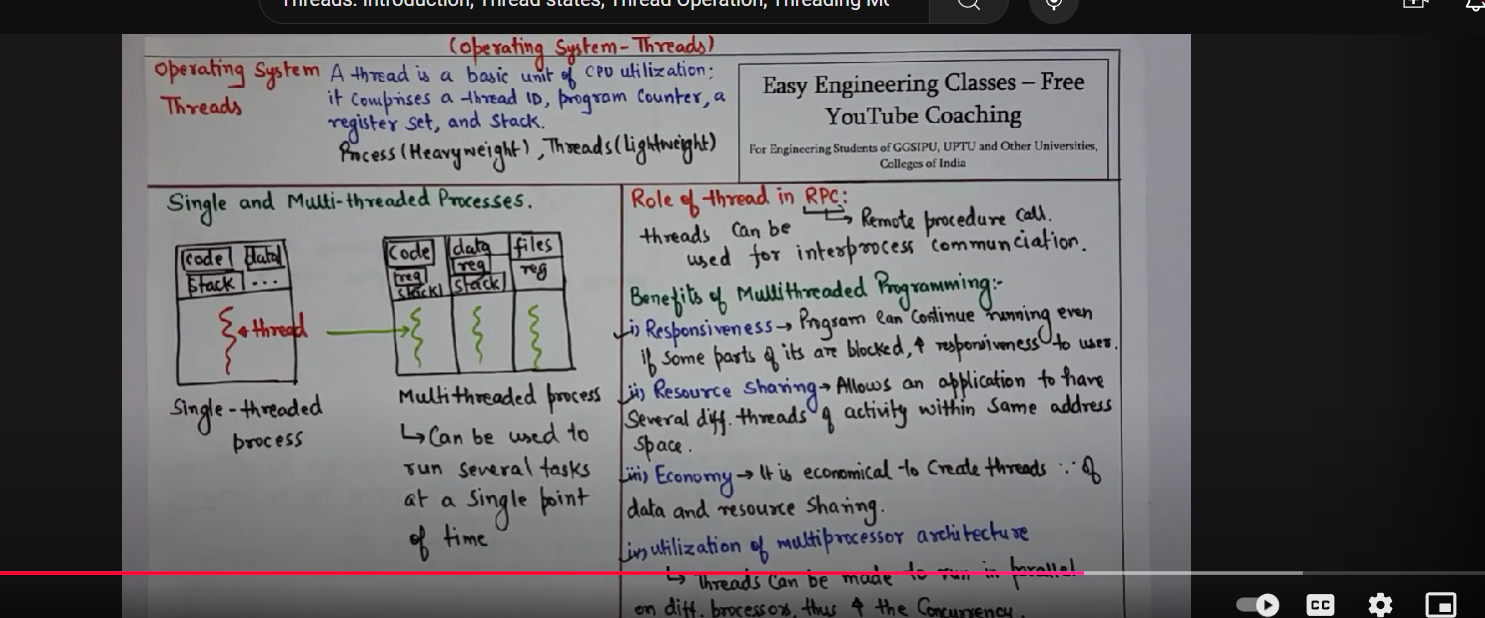 Threads: Introduction, Thread states, Thread Operation, Threading
(Operating System - Threads)
Operating System
Threads
A thread is a basic unit of CPU utilization;
it Comprises a thread ID, program Counter, a
register set, and Stack.
Process (Heavyweight), Threads (lightweight)
Easy Engineering Classes – Free
YouTube Coaching
For Engineering Students of GGSIPU, UPTU and Other Universities,
Colleges of India
Single and Multi-threaded Processes.
code data
stack ...
thread
Single-threaded
process
code data files
reg reg reg
stack stack
Multithreaded process
↳ Can be used to
run several tasks
at a Single point
of time
Role of thread in RPC:
→ Remote procedure call.
threads Can be
used for interprocess communciation.
Benefits of Multithreaded Programming:-
i) Responsiveness → Program Can Continue running even
if some parts of its are blocked, ↑ responsiveness to user.
ii) Resource Sharing → Allows an application to have
Several diff. threads of activity within Same address
space.
iii) Economy → It is economical to Create threads ∵ of
data and resource Sharing.
iv) utilization of multiprocessor architecture
↳ Threads Can be made to run in parallel
on diff. processors, thus ↑ the Concurrency.
CC